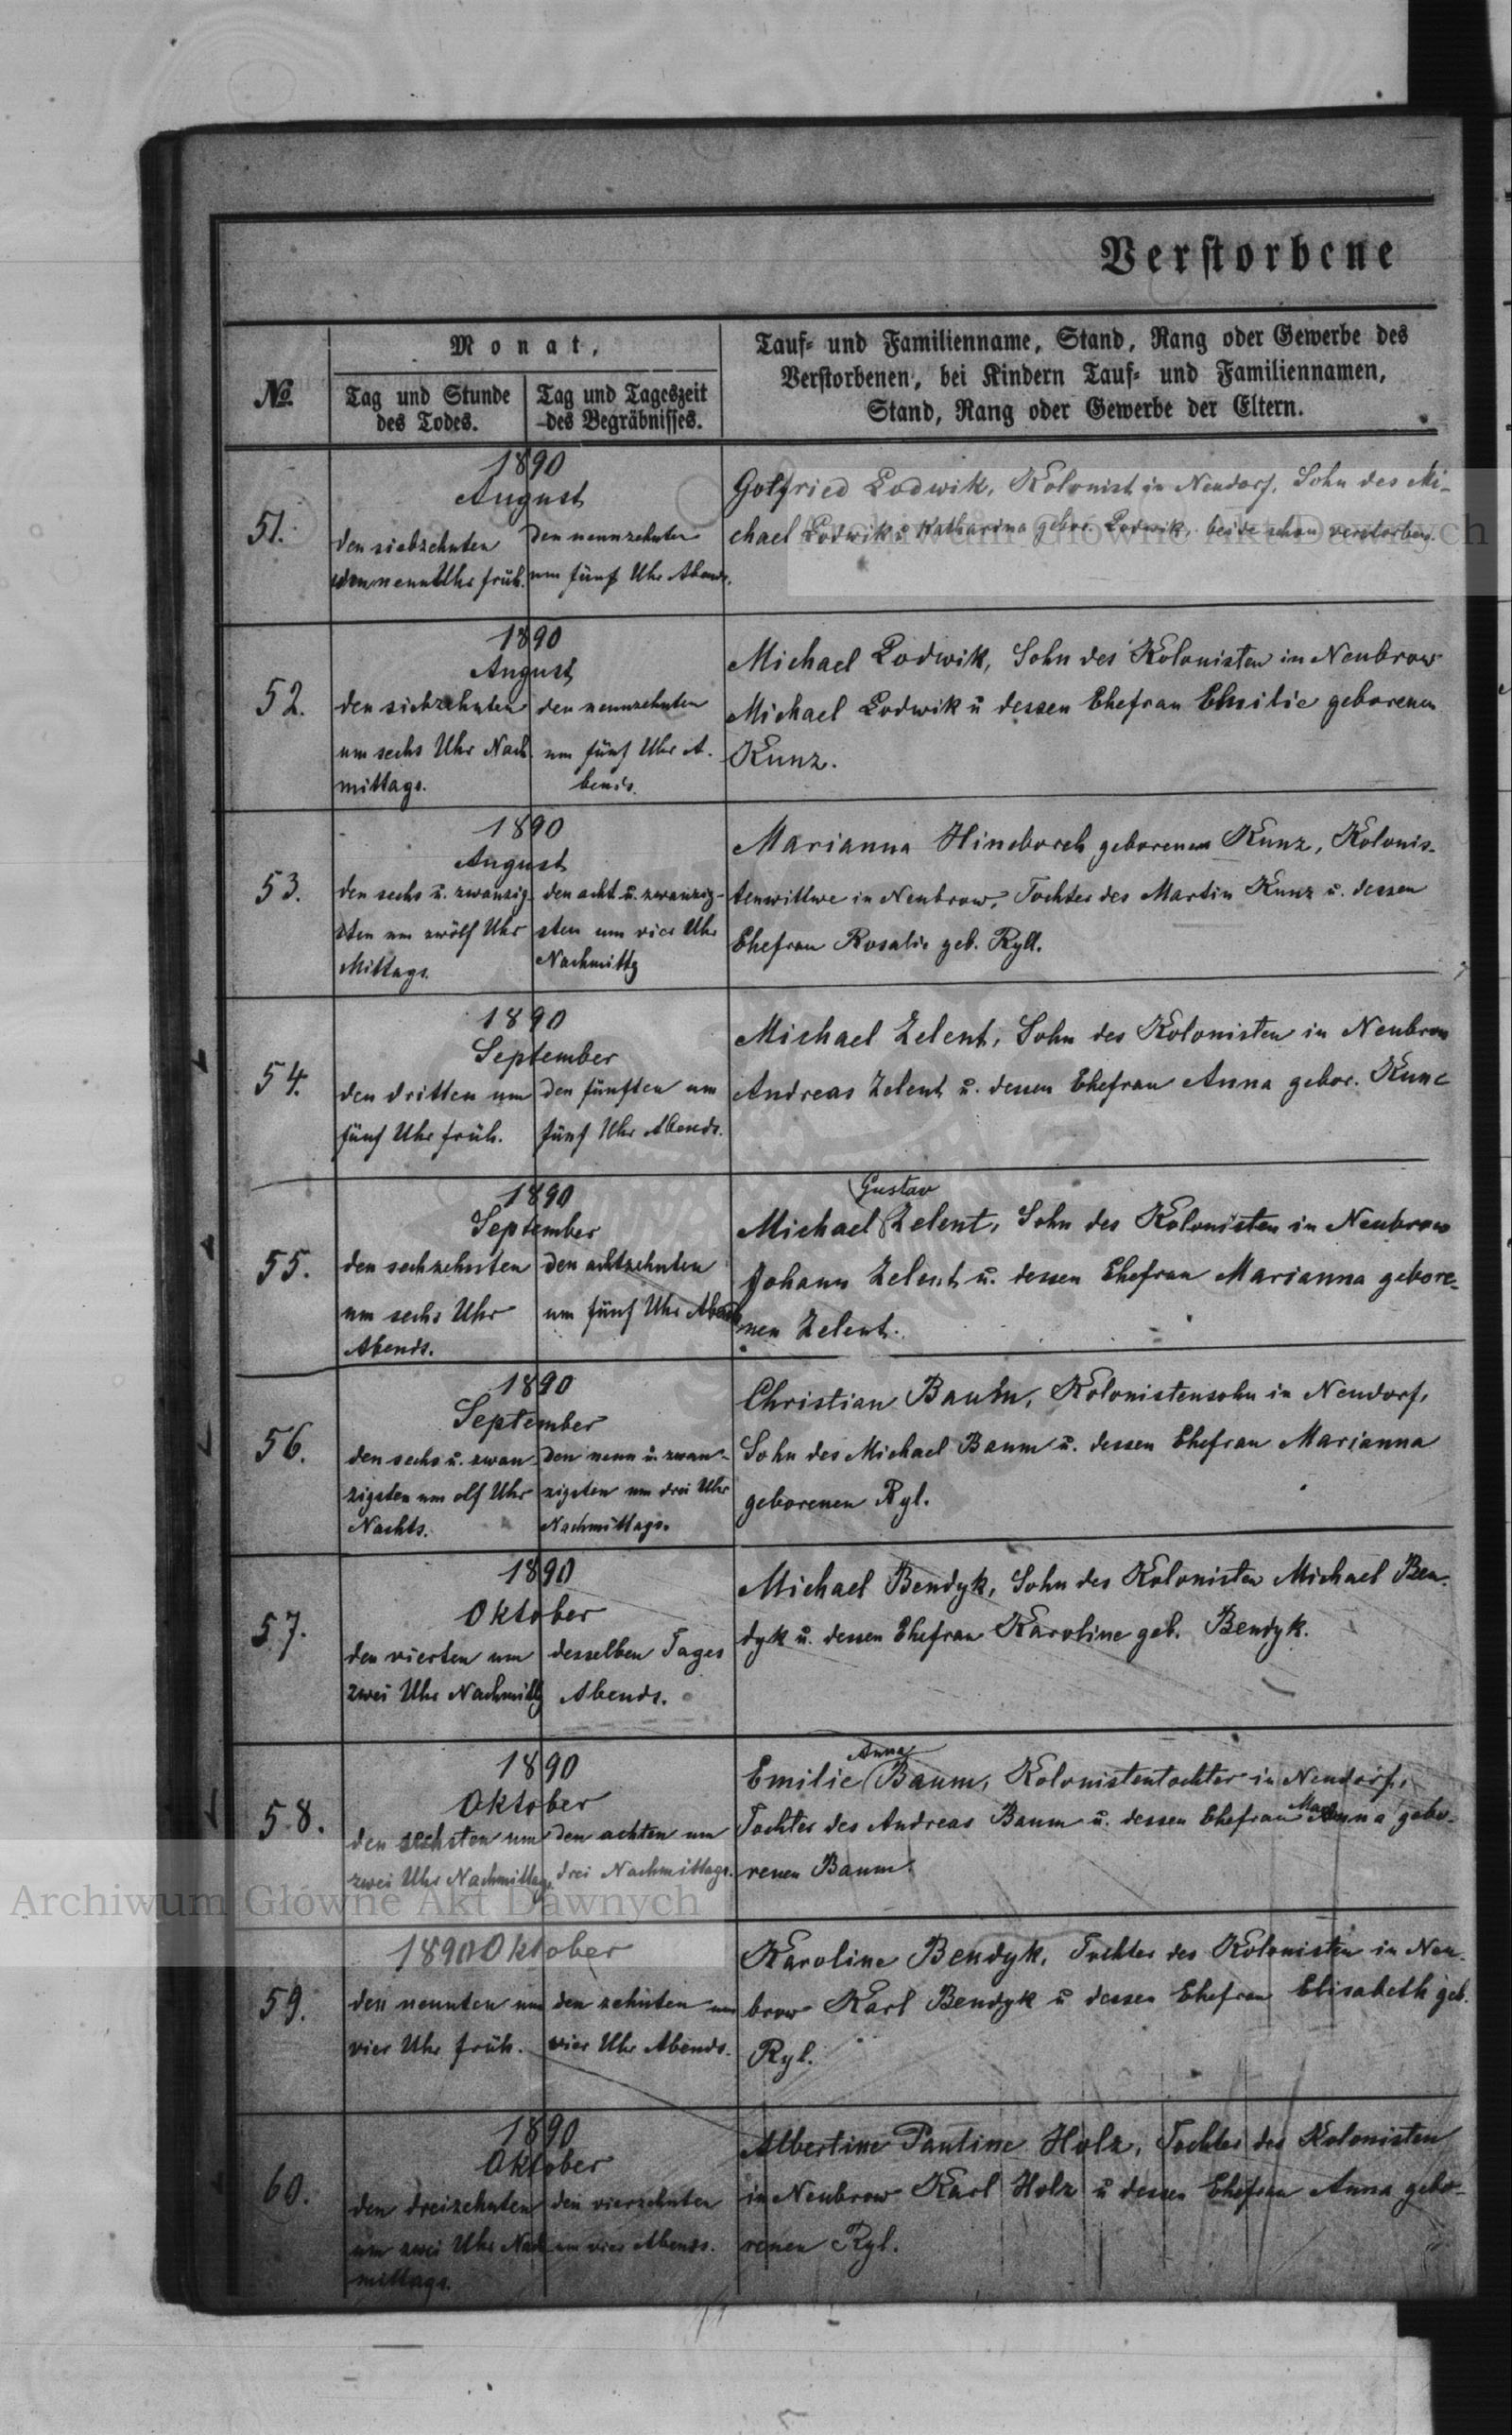 Verstorbene
№
Monat,
Tag und Stunde
des Todes.
Tag und Tageszeit
des Begräbnisses.
Tauf- und Familienname, Stand, Rang oder Gewerbe des
Verstorbenen, bei Kindern Tauf- und Familiennamen,
Stand, Rang oder Gewerbe der Eltern.
51.
1890
August
den siebzehnten
um neun Uhr früh.
den neunzehnten
um fünf Uhr Abends.
Gotfried Lodwik, Kolonist in Neudorf, Sohn des Mi-
chael Lodwik u Katharina gebor. Lodwik, beide schon verstorben.
52.
1890
August
den siebzehnten
um sechs Uhr Nach
mittags.
den neunzehnten
um fünf Uhr A.
bends.
Michael Lodwik, Sohn des Kolonisten in Neubrow
Michael Lodwik u dessen Ehefrau Emilie geborenen
Kunz.
53.
1890
August
den sechs u. zwanzig
sten um zwölf Uhr
Mittags.
den acht u. zwanzig-
sten um vier Uhr
Nachmittg
Marianna Hineborch geborenen Kunz, Kolonis-
tenwittwe in Neubrow, Tochter des Martin Kunz u. dessen
Ehefrau Rosalie geb. Ryll.
54.
1890
September
den dritten um
fünf Uhr früh.
den fünften um
fünf Uhr Abends.
Michael Zelent, Sohn des Kolonisten in Neubrow
Andreas Zelent u. dessen Ehefrau Anna gebor. Kunc
55.
1890
September
den sechzehnten
um sechs Uhr
Abends.
den achtzehnten
um fünf Uhr Abends
Gustav
Michael Zelent, Sohn des Kolonisten in Neubrow
Johann Zelent u. dessen Ehefrau Marianna gebore-
nen Zelent.
56.
1890
September
den sechs u. zwan-
zigsten um elf Uhr
Nachts.
den neun u. zwan-
zigsten um drei Uhr
Nachmittags.
Christian Baum, Kolonistensohn in Neudorf,
Sohn des Michael Baum u. dessen Ehefrau Marianna
geborenen Ryl.
57.
1890
Oktober
den vierten um
zwei Uhr Nachmittg
desselben Tages
Abends.
Michael Bendyk, Sohn des Kolonisten Michael Ben-
dyk u. dessen Ehefrau Karoline geb. Bendyk.
58.
1890
Oktober
den sechsten um
zwei Uhr Nachmittag.
den achten um
drei Nachmittags.
Anna
Emilie Baum, Kolonistentochter in Neudorf,
Tochter des Andreas Baum u. dessen Ehefrau Marianna gebo-
renen Baum.
59.
1890 Oktober
den neunten um
vier Uhr früh.
den zehnten um
vier Uhr Abends.
Karoline Bendyk, Tochter des Kolonisten in Neu-
brow Karl Bendyk u dessen Ehefrau Elisabeth geb.
Ryl.
60.
1890
Oktober
den dreizehnten
um zwei Uhr Nach
mittags.
den vierzehnten
um vier Abends.
Albertine Pauline Holz, Tochter des Kolonisten
in Neubrow Karl Holz u dessen Ehefrau Anna gebo-
renen Ryl.
Archiwum Główne Akt Dawnych
Archiwum Główne Akt Dawnych